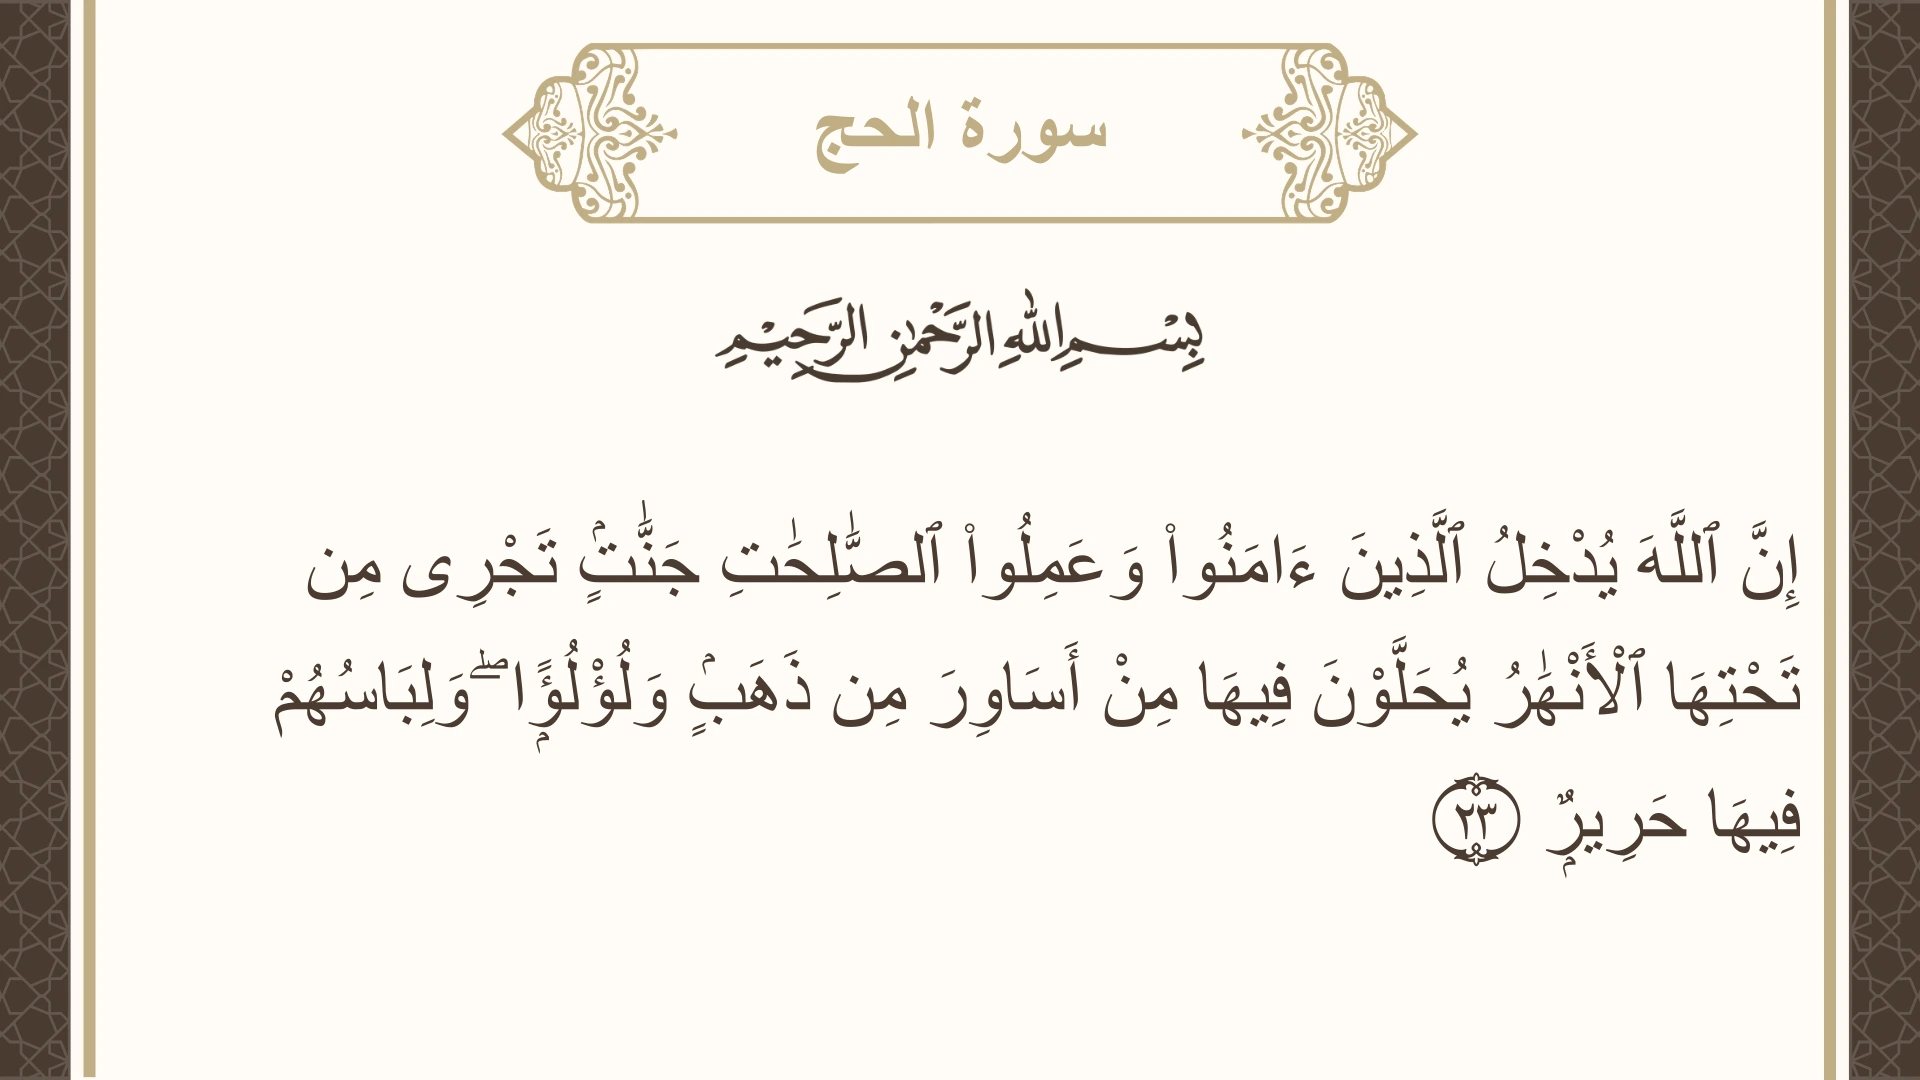 سورة الحج
بِسْمِ اللهِ الرَّحْمٰنِ الرَّحِيْمِ
إِنَّ ٱللَّهَ يُدْخِلُ ٱلَّذِينَ ءَامَنُوا۟ وَعَمِلُوا۟ ٱلصَّٰلِحَٰتِ جَنَّٰتٍۢ تَجْرِى مِن
تَحْتِهَا ٱلْأَنْهَٰرُ يُحَلَّوْنَ فِيهَا مِنْ أَسَاوِرَ مِن ذَهَبٍۢ وَلُؤْلُؤًۭا ۖ وَلِبَاسُهُمْ
فِيهَا حَرِيرٌۭ ٢٣